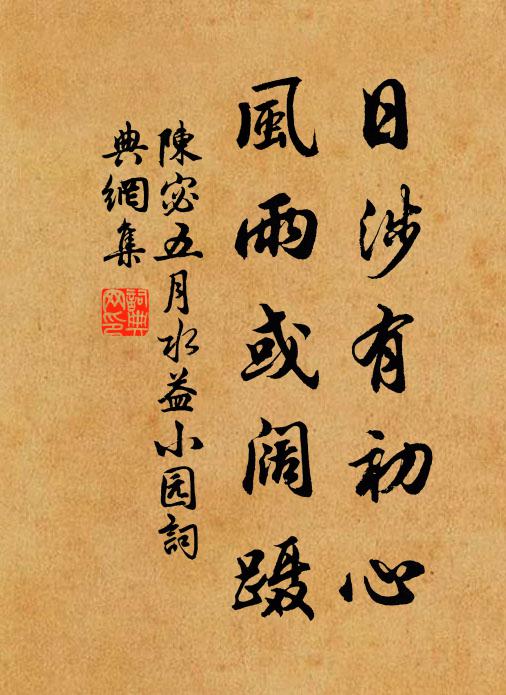 日涉有初心
風雨或阔蹑
陳宓五月水益小园詞
典網集
詞典
网印